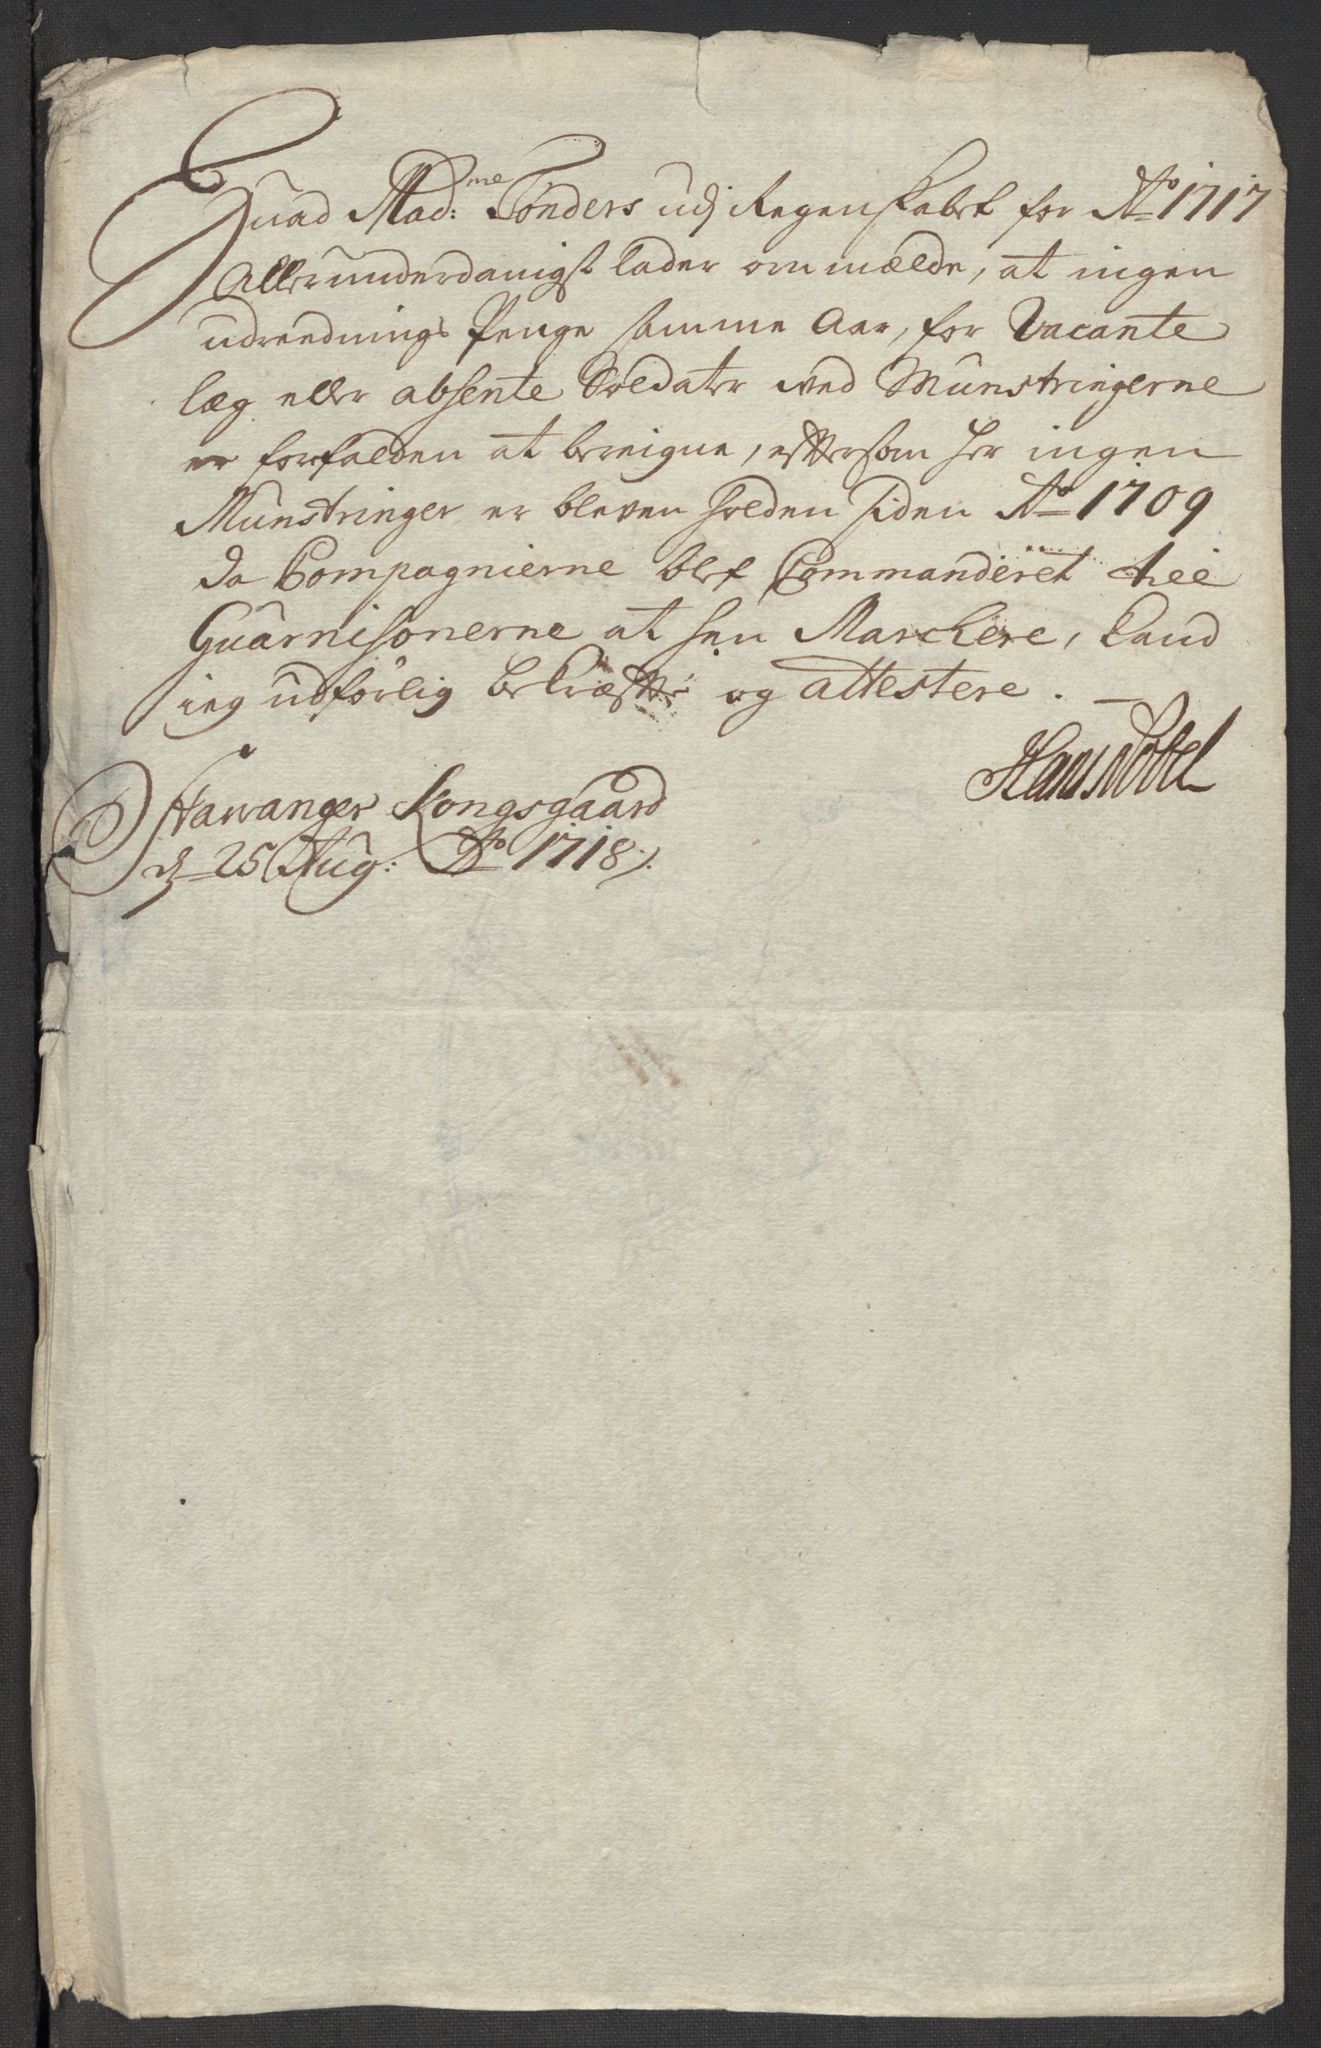 Huad Mad:me Tønders udj Regenskabet for Ao 1717
Allerunderdanigst lader ommælde, at ingen
udreednings Penge samme Aar, for Vacante
læg eller absente Soldater ved Munstringerne
er forfalden at bereigne, efftersom her ingen
Munstringer er bleven holden siden Ao 1709
da Compagnierne blef Commanderet thil
Guarnisonerne at hen Marchere, kand
ieg udførlig bekræffte og attestere.
Hans Nobel
Stavanger Kongsgaard
d 25 Aug: Ao 1718